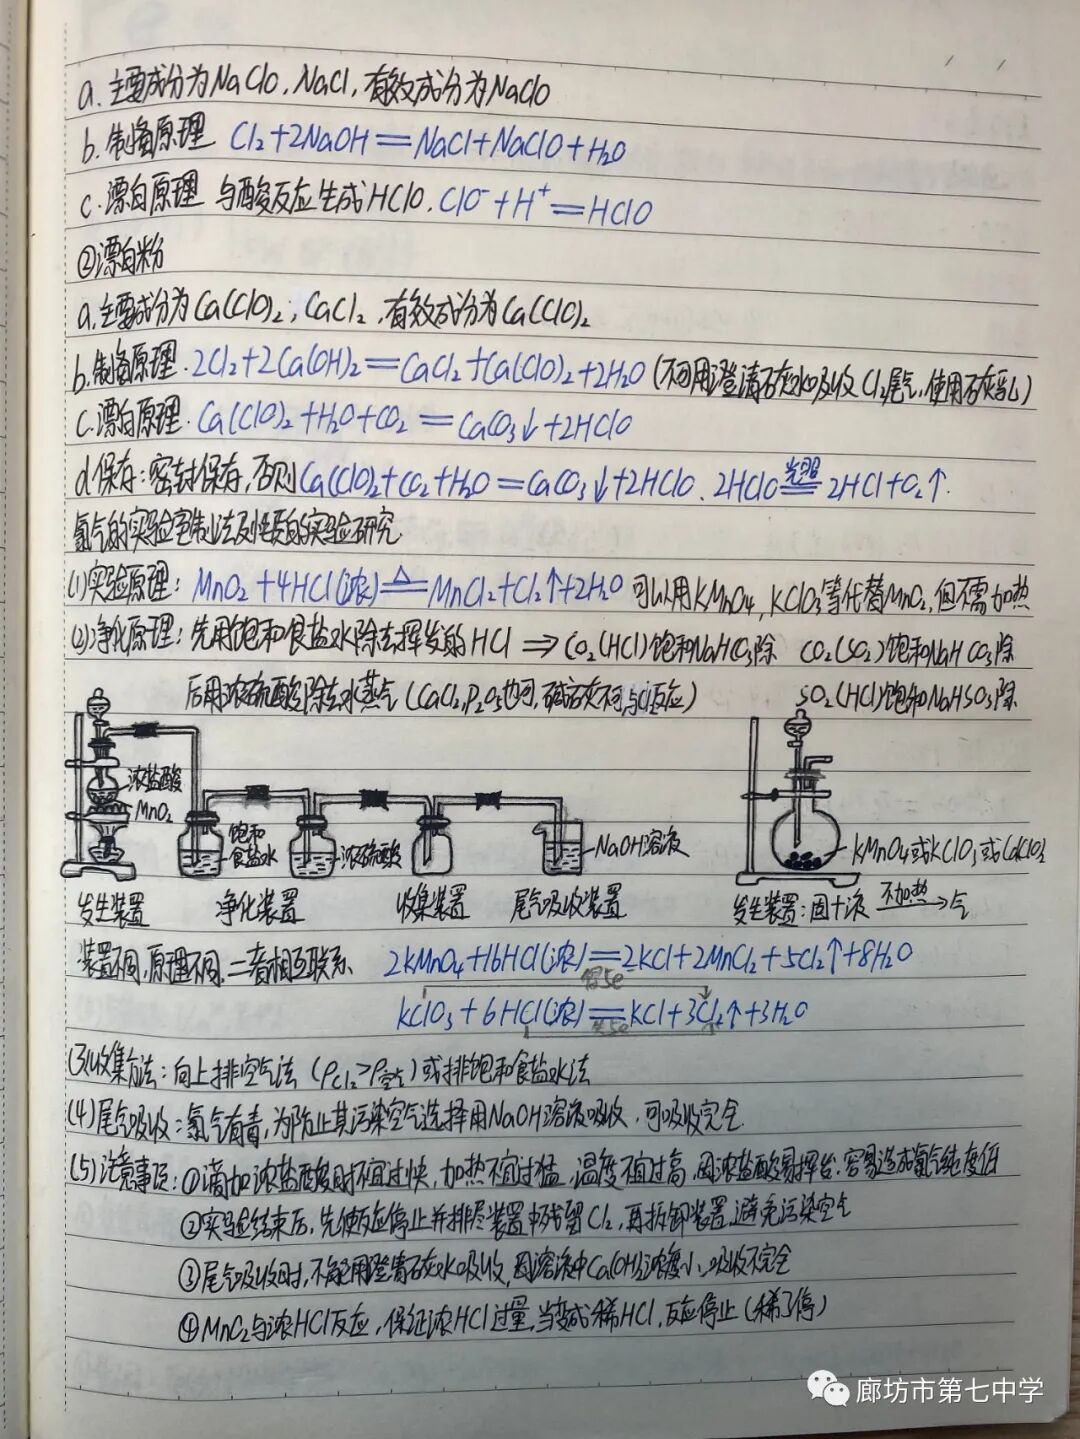 a.主要成分为NaClO,NaCl,有效成分为NaClO
b.制备原理 Cl₂+2NaOH=NaCl+NaClO+H₂O
c.漂白原理 与酸反应生成HClO.ClO⁻+H⁺=HClO
②漂白粉
a.主要成分为Ca(ClO)₂,CaCl₂,有效成分为Ca(ClO)₂
b.制备原理.2Cl₂+2Ca(OH)₂=CaCl₂+Ca(ClO)₂+2H₂O(不可用澄清石灰水吸收Cl₂尾气,使用石灰乳)
c.漂白原理.Ca(ClO)₂+H₂O+CO₂=CaCO₃↓+2HClO
d.保存:密封保存,否则Ca(ClO)₂+CO₂+H₂O=CaCO₃↓+2HClO.2HClO=光照=2HCl+O₂↑.
氯气的实验室制法及性质的实验研究
(1)实验原理:MnO₂+4HCl(浓)=△=MnCl₂+Cl₂↑+2H₂O 可以用KMnO₄,KClO₃等代替MnO₂,但不需加热
(2)净化原理:先用饱和食盐水除去挥发的HCl⇒CO₂(HCl)饱和NaHCO₃除 CO₂(SO₂)饱和NaHCO₃除
后用浓硫酸除去水蒸气(CaCl₂,P₂O₅也可,碱石灰不可与Cl₂反应) SO₂(HCl)饱和NaHSO₃除
浓盐酸
MnO₂
饱和
食盐水
浓硫酸
NaOH溶液
KMnO₄或KClO₃或Ca(ClO)₂
发生装置 净化装置 收集装置 尾气吸收装置 发生装置:固+液 不加热→气
装置不同,原理不同,二者相互联系. 2KMnO₄+16HCl(浓)=2KCl+2MnCl₂+5Cl₂↑+8H₂O
得5e
KClO₃+6HCl(浓)=KCl+3Cl₂↑+3H₂O
失5e
(3)收集方法:向上排空气法(ρCl₂>ρ空气)或排饱和食盐水法
(4)尾气吸收:氯气有毒,为防止其污染空气选择用NaOH溶液吸收,可吸收完全.
(5)注意事项:①滴加浓盐酸时不宜过快,加热不宜过猛,温度不宜过高,因浓盐酸易挥发.容易造成氯气纯度低
②实验结束后,先使反应停止并排尽装置中残留Cl₂,再拆卸装置,避免污染空气
③尾气吸收时,不能用澄清石灰水吸收,因溶液中Ca(OH)₂浓度小,吸收不完全
④MnO₂与浓HCl反应,保证浓HCl过量,当变成稀HCl,反应停止(稀了停)
廊坊市第七中学